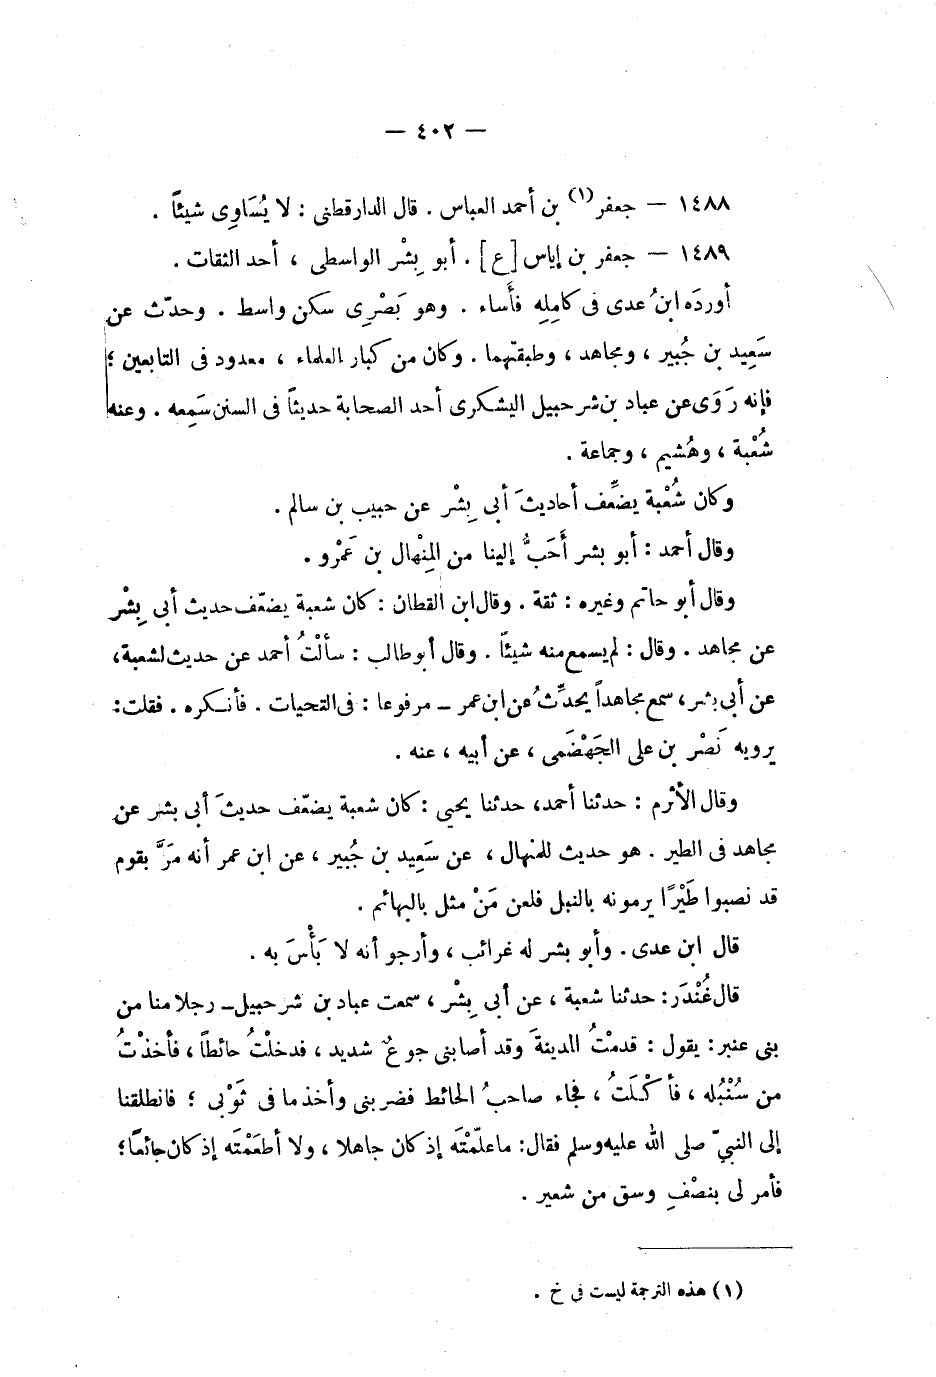 — ٤٠٢ —
١٤٨٨ — جعفر(١) بن أحمد العباس . قال الدارقطنى : لا يُسَاوِى شيئاً .
١٤٨٩ — جعفر بن إياس [ع] . أبو بِشْر الواسطى ، أحد الثقات .
أوردَه ابنُ عدى فى كامِلِه فأَساء . وهو بَصْرِى سكن واسط . وحدّث عن
سَعِيد بن جُبير ، ومجاهد ، وطبقتهما . وكان من كبار العلماء ، معدود فى التابعين ؛
فإنه رَوَى عن عباد بن شرحبيل اليشكرى أحد الصحابة حديثاً فى السنن سَمِعه . وعنه
شُعْبة ، وهُشيم ، وجماعة .
وكان شُعْبة يضعِّف أحاديثَ أبى بِشْر عن حبيب بن سالم .
وقال أحمد : أبو بشر أَحَبُّ إلينا من المِنْهال بن عَمْرو .
وقال أبو حاتم وغيره : ثقة . وقال ابن القطان : كان شعبة يضعّف حديث أبى بِشْر
عن مجاهد . وقال : لم يسمع منه شيئاً . وقال أبو طالب : سألْتُ أحمد عن حديث لشعبة،
عن أبى بشر ، سمع مجاهداً يحدِّثُ عن ابن عمر — مرفوعا : فى التحيات . فأنكره . فقلت :
يرويه نَصْر بن على الجَهْضَمى ، عن أبيه ، عنه .
وقال الأثرم : حدثنا أحمد، حدثنا يحيى : كان شعبة يضعّف حديثَ أبى بشر عن
مجاهد فى الطير . هو حديث للمنهال ، عن سَعِيد بن جُبير ، عن ابن عمر أنه مَرَّ بقوم
قد نصبوا طَيْرًا يرمونه بالنبل فلعن مَنْ مثل بالبهائم .
قال ابن عدى . وأبو بشر له غرائب ، وأرجو أنه لا بَأْسَ به .
قال غُنْدَر: حدثنا شعبة ، عن أبى بِشْر ، سمعت عباد بن شرحبيل — رجلا منا من
بنى عنبر: يقول : قدمْتُ المدينةَ وقد أصابنى جوعٌ شديد ، فدخلْتُ حائطاً ، فأخذْتُ
من سُنْبُله ، فأكْلَتُ ، فجاء صاحبُ الحائط فضربنى وأخذ ما فى ثَوْبى ؛ فانطلقنا
إلى النبىّ صلى الله عليه وسلم فقال: ما علّمْتَه إذ كان جاهلا ، ولا أطعَمْتَه إذ كان جائعًا ؛
فأمر لى بنصْفِ وسق من شعير .
(١) هذه الترجمة ليست فى خ .